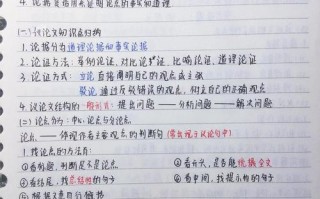 4. 论据是指用来证明论点的事实和道理
(一)议论文知识归纳
1. 论据分为道理论据和事实论据
2. 论证方法：举例论证、对比论证、比喻论证、道理论证
3. 论证方式：立论 直接阐明自己的观点或主张
驳论 通过反驳错误的观点，树立自己的正确观点
4. 议论文结构的一般形式：提出问题——分析问题——解决问题
(二)论点分为：中心论点与分论点
论点——体现作者主要观点的判断句(常出现于议论句中)
1. 找论点的方法有：
①看标题，判断是不是论点 ②看开头，是否能统摄全文
③看结尾，找总结的句子 ④看中间，找提示性的句子